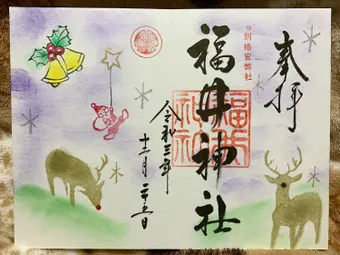 奉拝
別格官幣社
福井神社
福井神社
令和三年
十二月二十五日